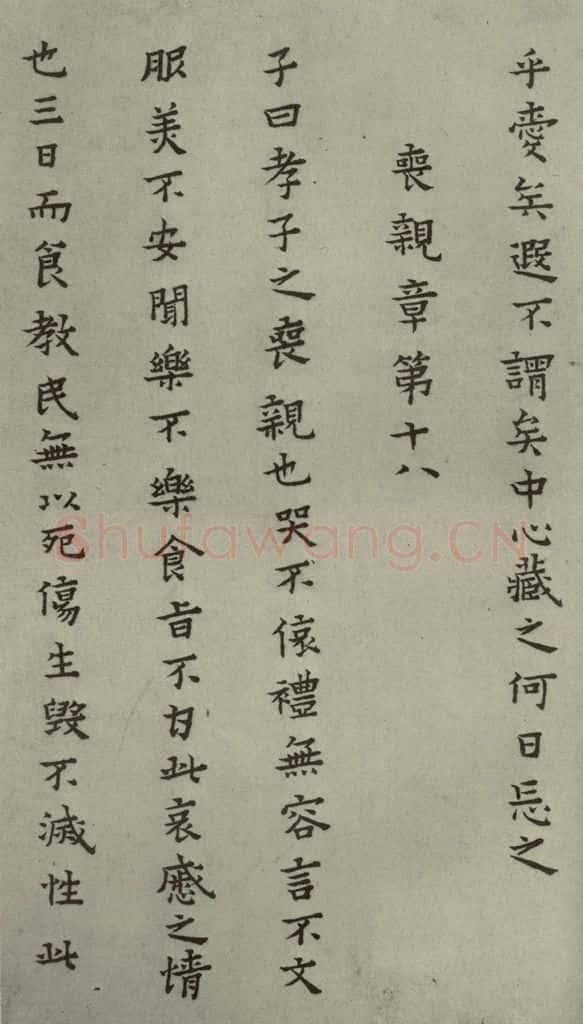 乎愛矣遐不謂矣中心藏之何日忘之
喪親章第十八
子曰孝子之喪親也哭不偯禮無容言不文
服美不安聞樂不樂食旨不甘此哀慼之情
也三日而食教民無以死傷生毀不滅性此
Shufawang.CN